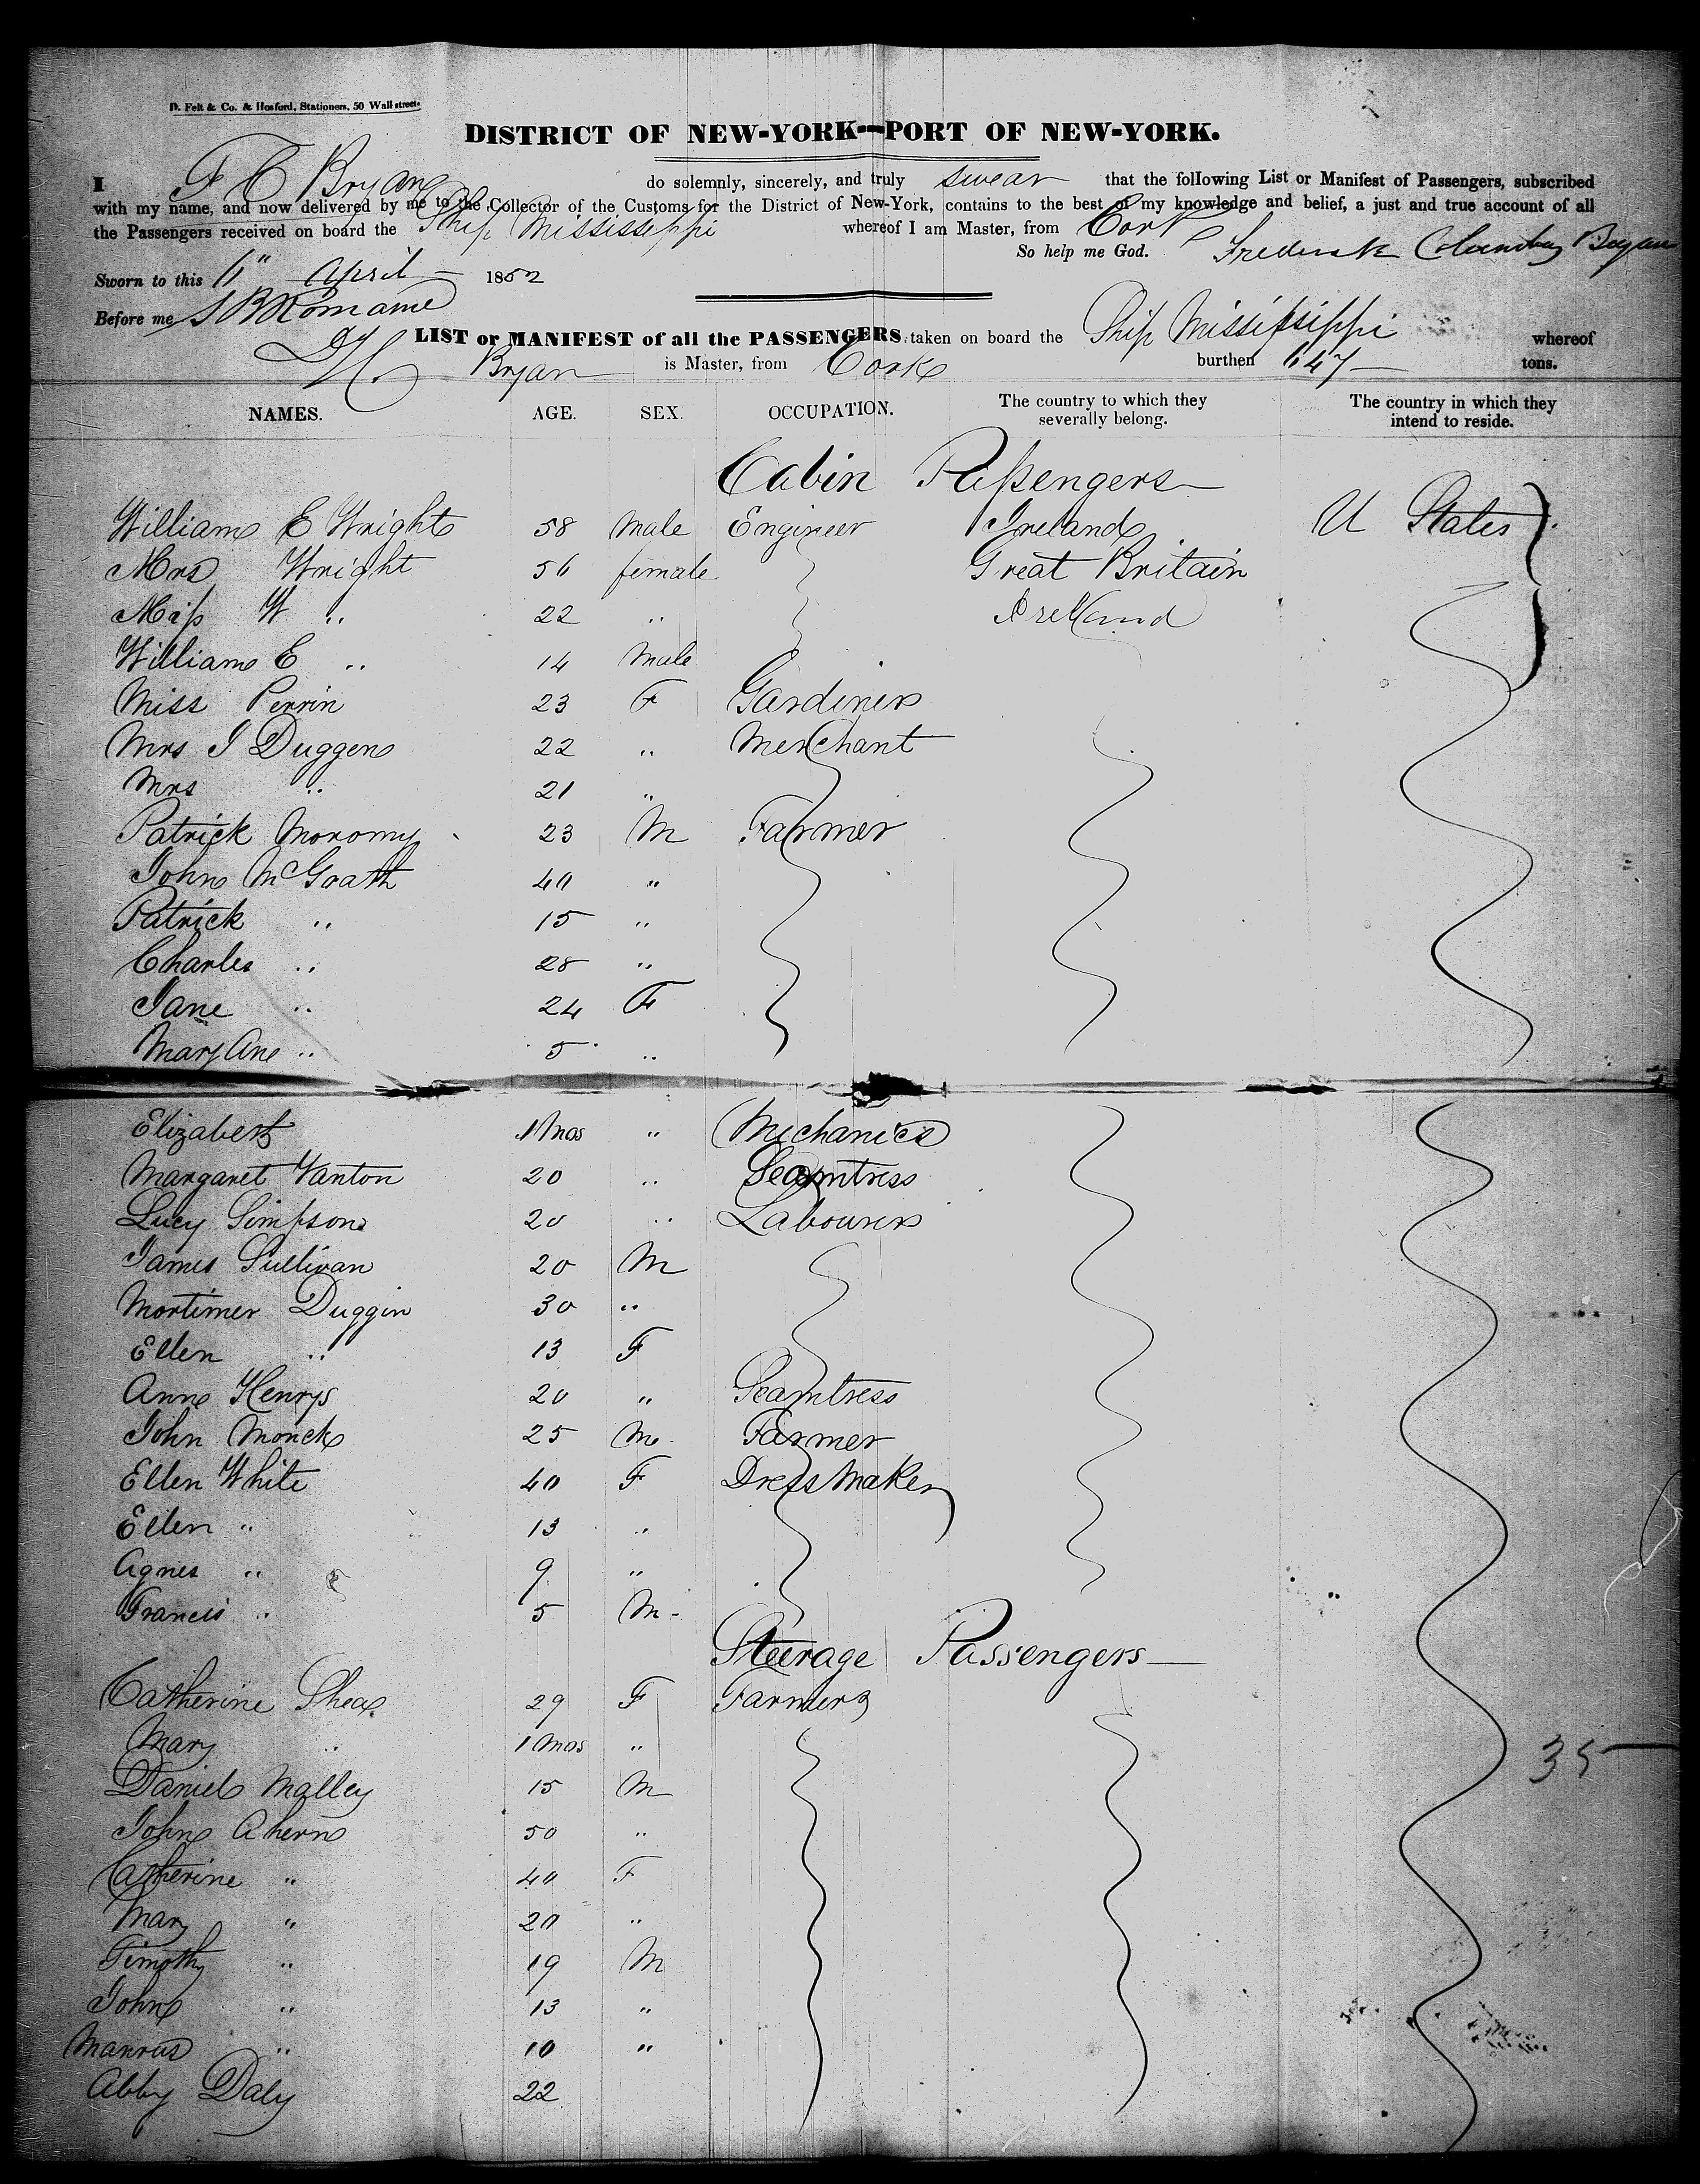 D. Felt & Co. & Hosford, Stationers, 50 Wall street.
DISTRICT OF NEW-YORK—PORT OF NEW-YORK.
I F C Bryan do solemnly, sincerely, and truly swear that the following List or Manifest of Passengers, subscribed
with my name, and now delivered by me to the Collector of the Customs for the District of New-York, contains to the best of my knowledge and belief, a just and true account of all
the Passengers received on board the Ship Mississippi whereof I am Master, from Cork
So help me God. Frederick Bryan
Sworn to this 6" April 1852
Before me
LIST or MANIFEST of all the PASSENGERS taken on board the Ship Mississippi whereof
Bryan is Master, from Cork burthen 647 tons.
NAMES. AGE. SEX. OCCUPATION. The country to which they severally belong. The country in which they intend to reside.
Cabin Passengers
William E Wright 58 Male Engineer Ireland U States
Mrs Wright 56 female Great Britain
Miss W " 22 " Ireland
William E " 14 Male
Miss Perrin 23 F Gardiner
Mrs I Duggen 22 " Merchant
Mrs " 21 "
Patrick Moromy 23 M Farmer
John McGrath 40 "
Patrick " 15 "
Charles " 28 "
Jane " 24 F
Mary Ane " 5 "
Elizabeth Mos " Mechanics
Margaret Vanton 20 " Seamtress
Lucy Simpson 20 " Labourers
James Sullivan 20 M
Mortimer Duggin 30 "
Ellen " 13 F
Anne Henrys 20 " Seamtress
John Monck 25 M Farmer
Ellen White 40 F Dress Maker
Ellen " 13 "
Agnes " 9 "
Francis " 5 M
Steerage Passengers
Catherine Shea 29 F Farmers
Mary " 1 Mos "
Daniel Malley 15 M
John Ahern 50 "
Catherine " 40 F
Mary " 20 "
Timothy " 19 M
John " 13 "
" 10 "
Abby Daly 22
35